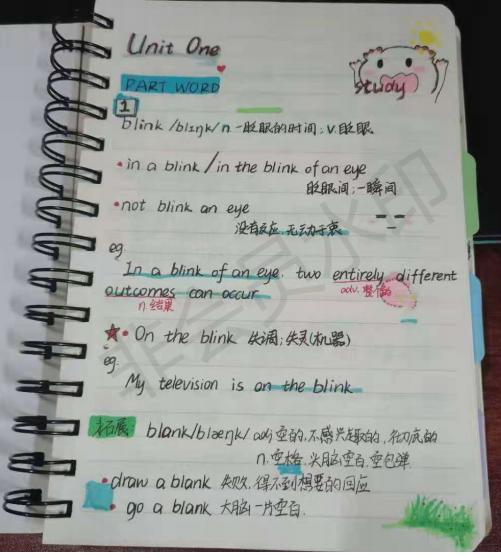 Unit One
study
PART WORD
1
blink /blɪŋk/ n. 一眨眼的时间; v. 眨眼
• in a blink / in the blink of an eye
眨眼间; 一瞬间
• not blink an eye
没有反应, 无动于衷
eg.
In a blink of an eye, two entirely different
adv. 整个的
outcomes can occur
n. 结果
★• On the blink 失调; 失灵(机器)
eg.
My television is on the blink
拓展: blank/blæŋk/ adj 空的, 不感兴趣的, 彻底的
n. 空格, 头脑空白, 空包弹.
• draw a blank 失败, 得不到想要的回应
• go a blank 大脑一片空白.
非会员水印